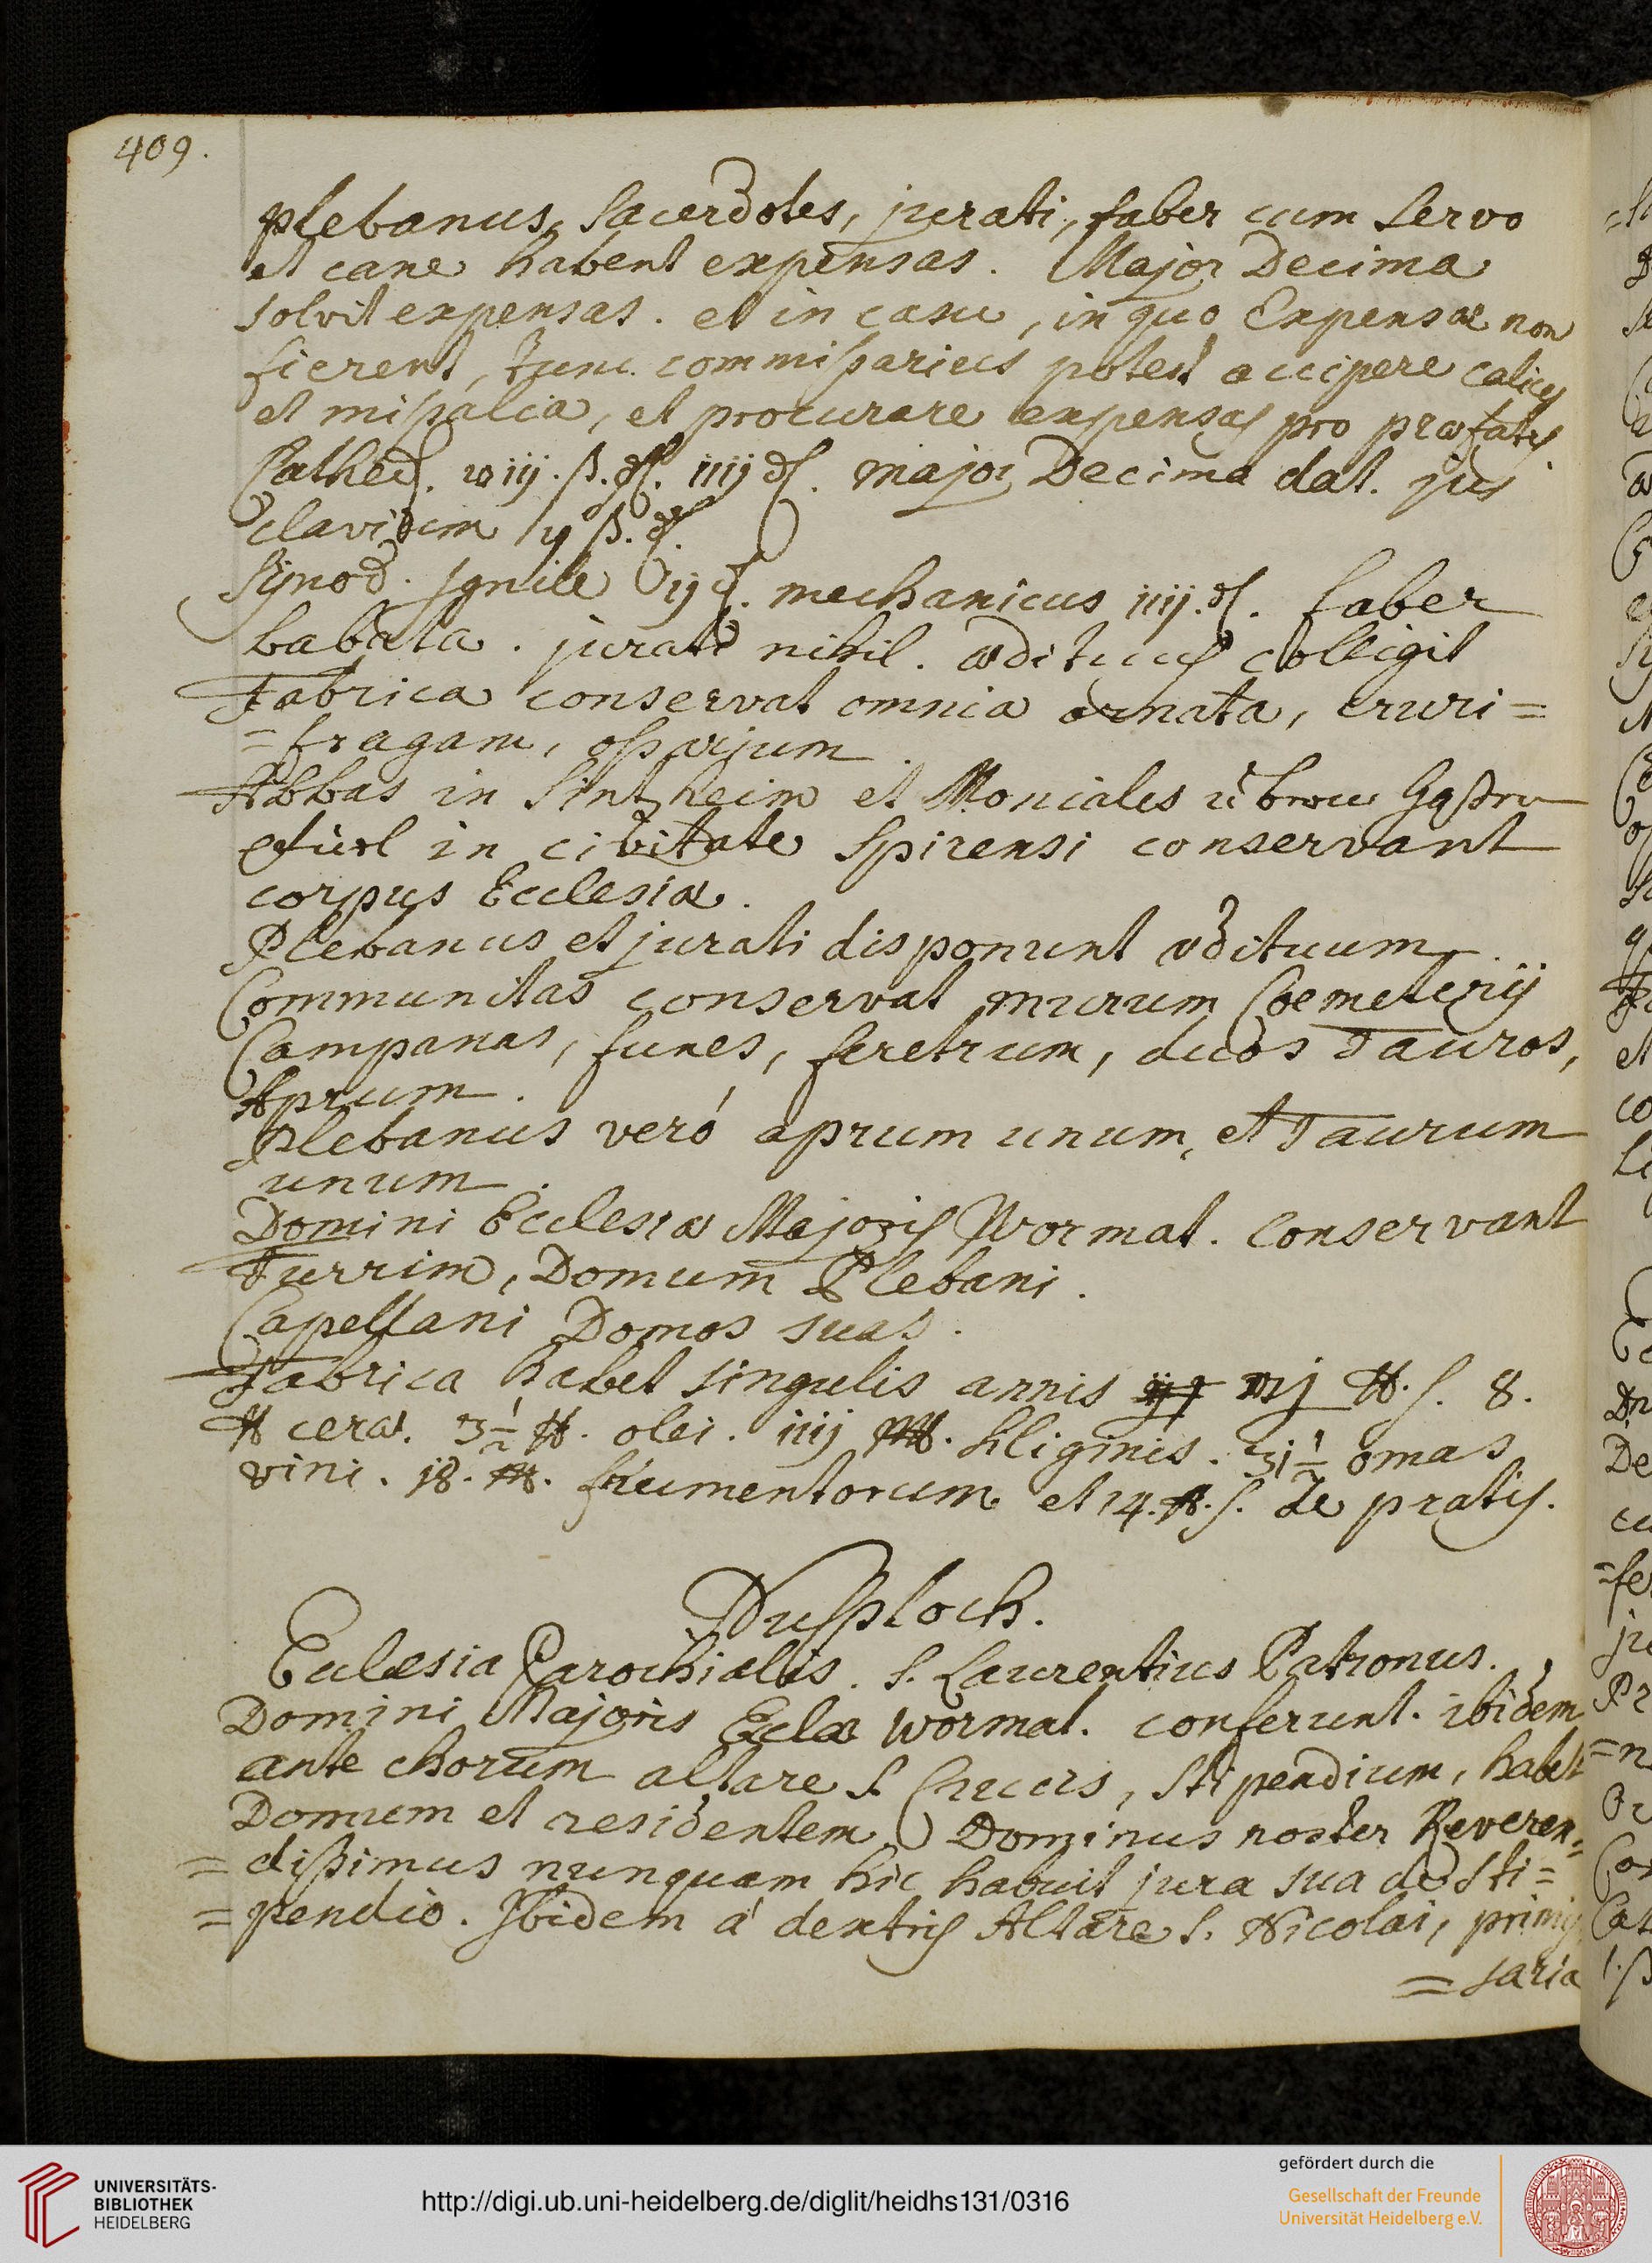 409.
plebanus, Sacerdotes, jurati, faber cum servo
et cane habent expensas. Major Decima
solvit expensas. et in casu, in quo Expensae non
fierent, tunc commissarius potest accipere calices
et missalia, et procurare expensas pro praefatis
Cathed. viiij. ß. ₰. iiij ₰. major Decima dat. jus
clavium ij ß. ₰.
Synod. Ignile ij ₰. mechanicus iiij. ₰. faber
babata. jurati nihil. aedituus colligit
Fabrica conservat omnia ornata, cruri=
=fragam, ossarium.
Abbas in Sintzheim et Moniales
in civitate Spirensi conservant
corpus Ecclesiae.
Plebanus et jurati disponunt aedituum
Communitas conservat murum Coemeterij
Campanas, funes, feretrum, duos Tauros,
Aprum.
Plebanus veró aprum unum, et Taurum
unum.
Domini Ecclesiae Majoris Wormat. conservant
Turrim, Domum Plebani.
Capellani Domos suas.
Fabrica habet singulis annis ℔. s. 8.
℔ cerae. 3½ ℔. olei. iiij siliginis. omas
vini. 18. frumentorum et 14. ℔. s. de pratis.
Nusploch.
Ecclesia Parochialis. S. Laurentius Patronus.
Domini Majoris Eccłae Wormat. conferunt. ibidem
ante chorum altare S. Crucis, stipendium, habet
Domum et residentem. Dominus noster Reveren=
=dissimus nunquam hic habuit jura sua de sti=
=pendio. Ibidem á dextris Altare S. Nicolai, primis
=saria
UNIVERSITÄTS-
BIBLIOTHEK
HEIDELBERG
http://digi.ub.uni-heidelberg.de/diglit/heidhs131/0316
gefördert durch die
Gesellschaft der Freunde
Universität Heidelberg e.V.